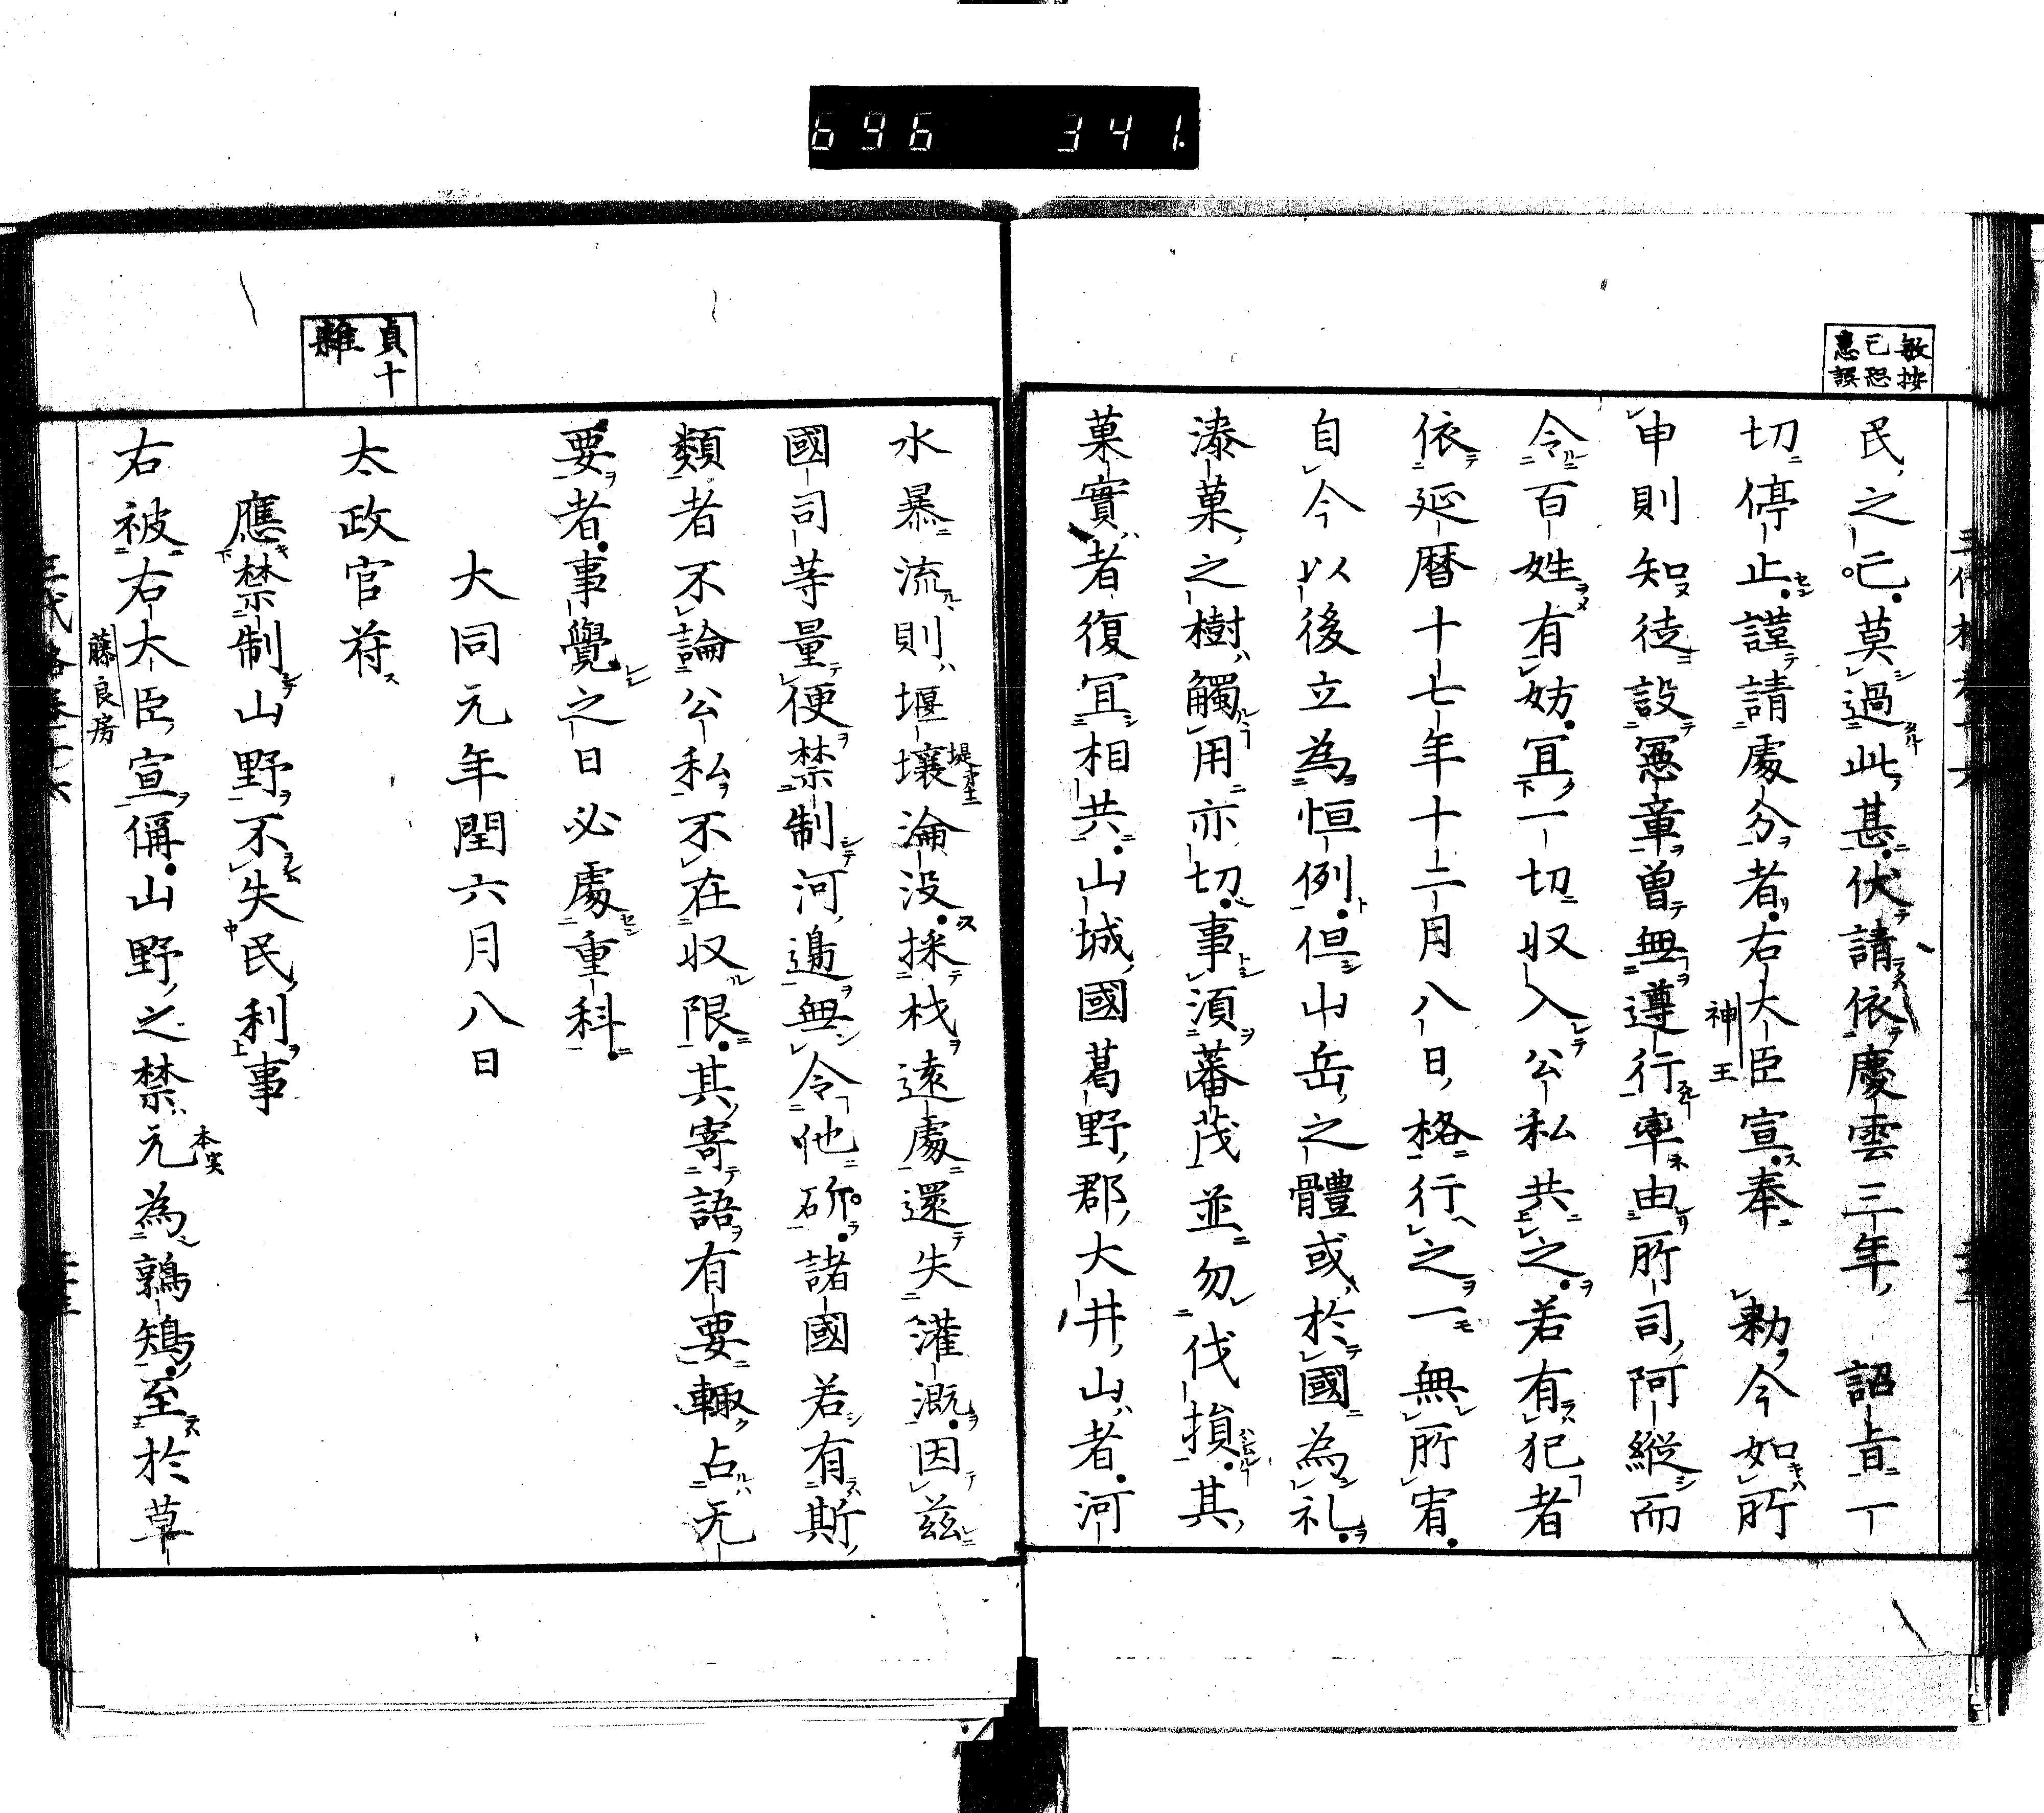 696 341.
敏按
已恐
患誤
民之已莫過此甚伏請依慶雲三年 詔旨一
切停止謹請處分者右大臣宣奉 勅今如所
神王
申則知徒設憲章曽無遵行率由所司阿縦而
令百姓有妨冝一切収入公私共之若有犯者
依延暦十七年十二月八日格行之一無所宥
自今以後立為恒例但山岳之體或於國為礼
漆菓之樹觸用亦切事湏蕃茂並勿伐損其
菓實者復冝相共山城國葛野郡大井山者河
水暴流則堰壌淪没採材遠處還失灌漑因茲
國司等量便禁制河邉無令他斫諸國若有斯
類者不論公私不在収限其寄語有要輙占无
要者事覺之日必處重科
大同元年閏六月八日
貞十
雜
太政官符
應禁制山野不失民利事
右被右大臣宣偁山野之禁元為鶉鴙至於草
藤良房
本实